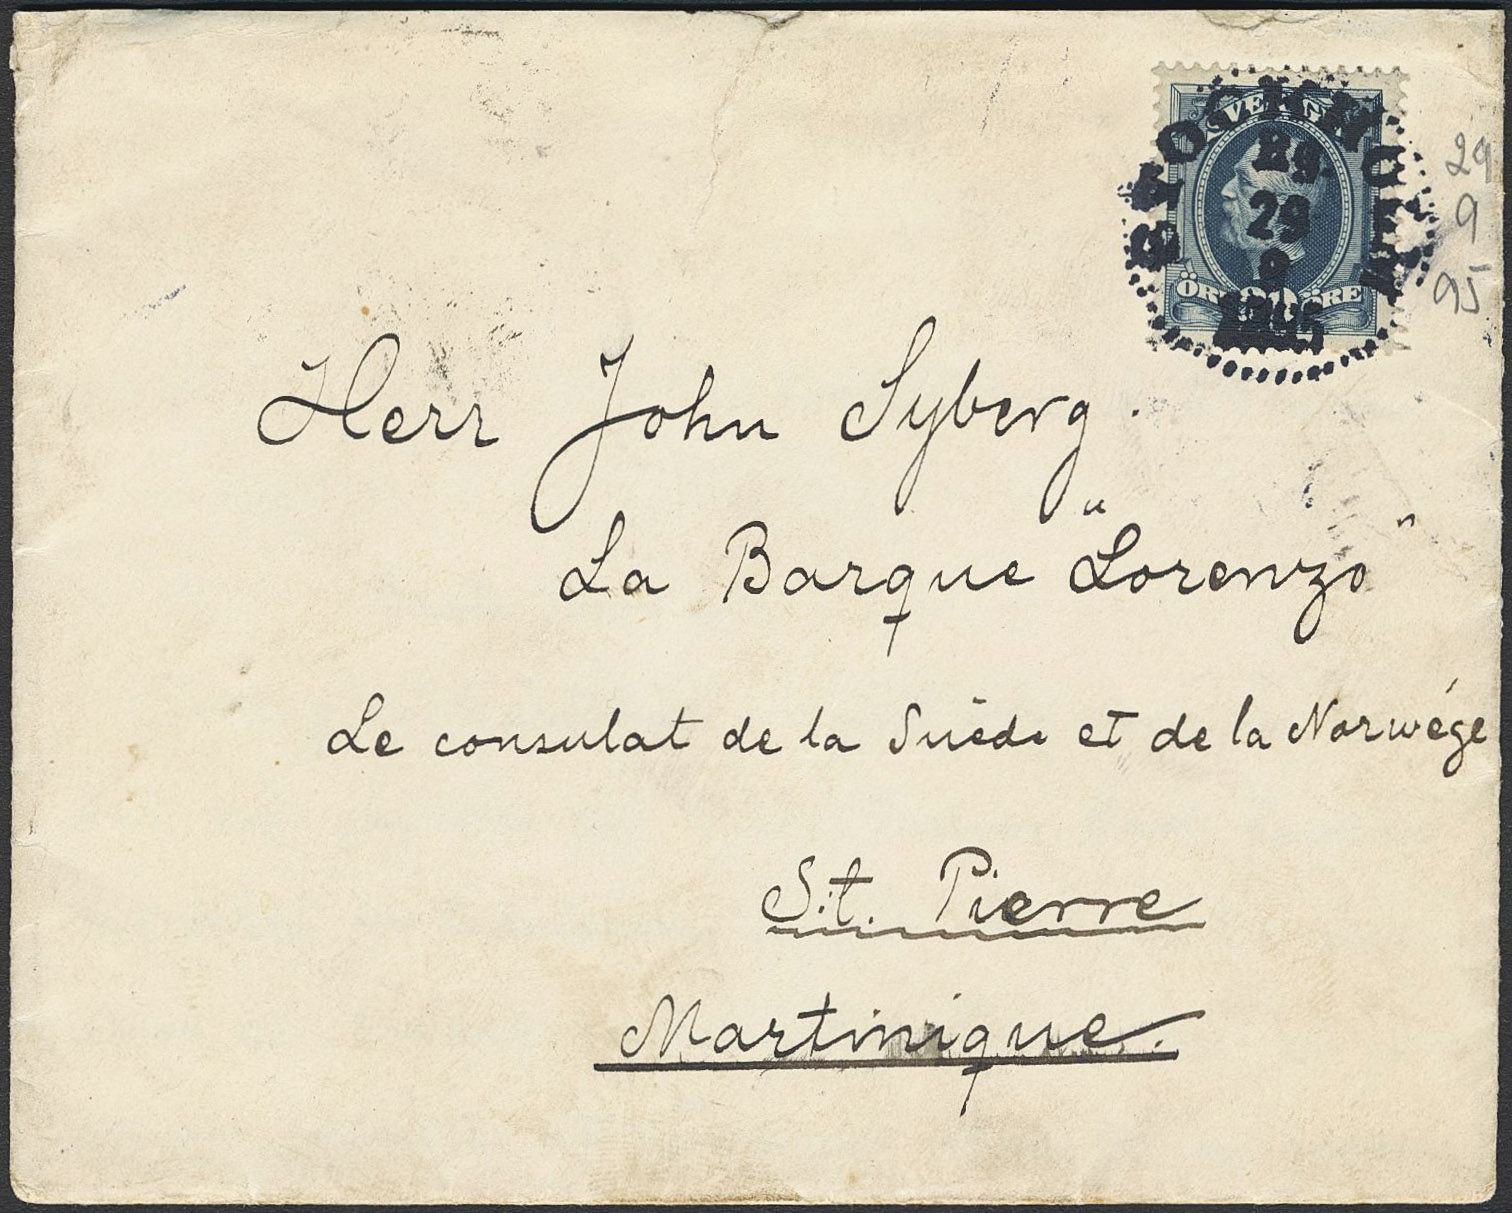 SVERIGE
STOCKHOLM
29
9
1895
ÖRE 20 ÖRE
29
9
95
Herr John Syberg.
La Barque "Lorenzo"
Le consulat de la Suède et de la Norwége
S:t. Pierre
Martinique.